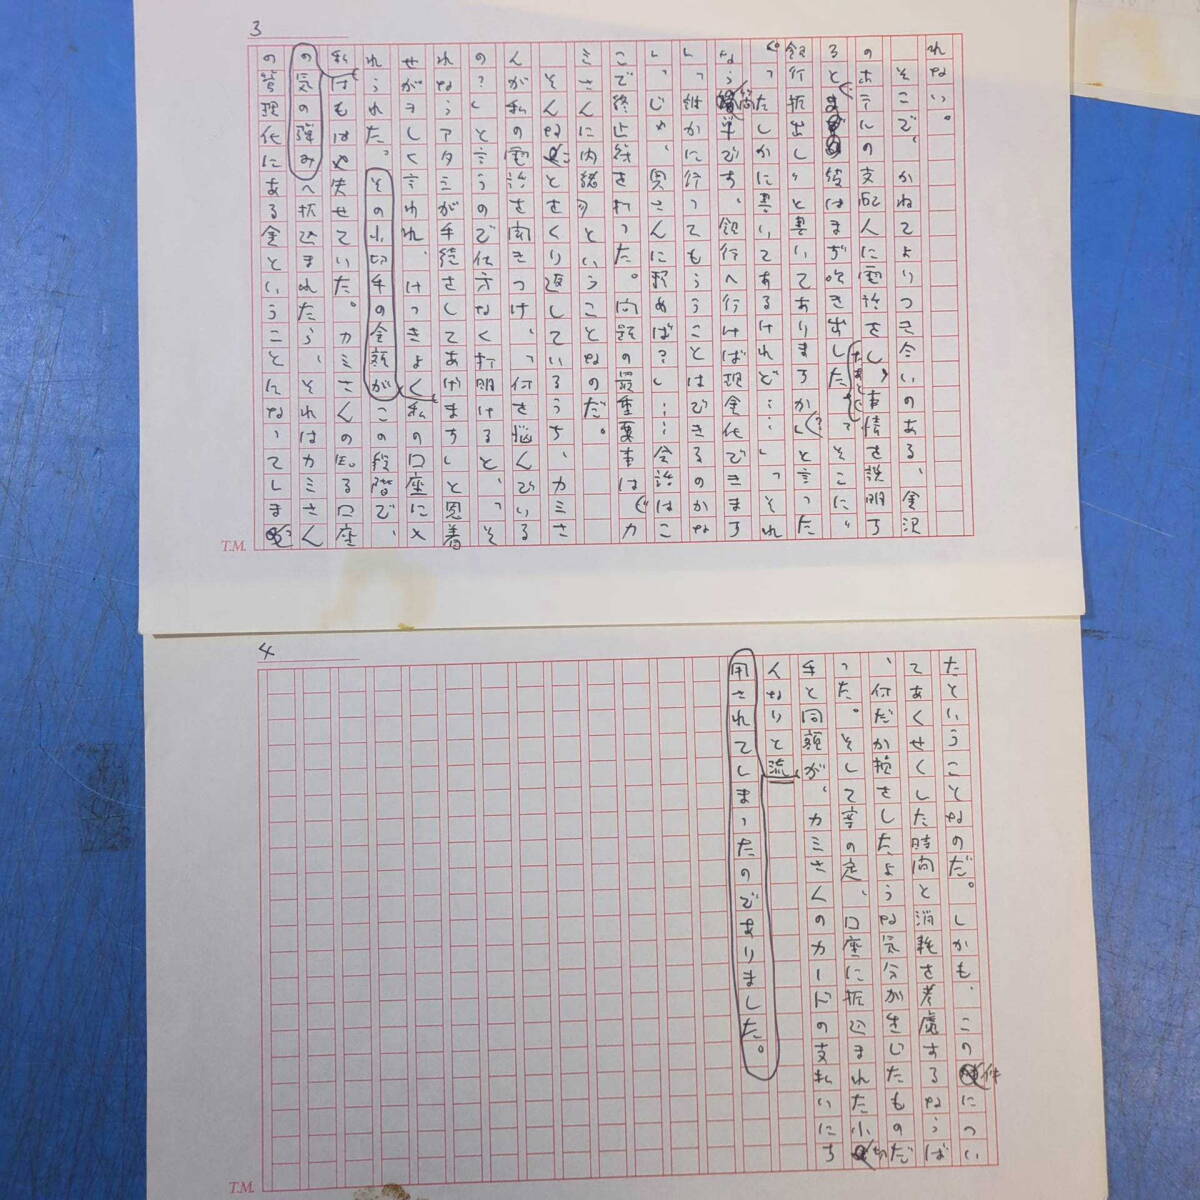 3
れない。
そこで、かねてよりつき合いのある、金沢
のホテルの支配人に電話をし、事情を説明す
ると、彼はまず吹き出した。「そこに"
銀行振出し"と書いてありますか?」と言った
「たしかに書いてあるけれど……」「それ
なら簡単です、銀行へ行けば現金化できます
」「誰かに行ってもらうことはできるのかな
」「じゃ、奥さんに頼めば?」……会話はこ
こで終止符を打った。問題の最重要事は"カ
ミさんに内緒"ということなのだ。
そんなことをくり返しているうち、カミさ
んが私の電話を聞きつけ、「何を悩んでいる
の?」と言うので仕方なく打明けると、「そ
れならアタシが手続きしてあげます」と恩着
せがましく言われ、けっきょく私の口座に入
れられた。その小切手の金額がこの段階で、
私はもはや失せていた。カミさんの回る口座
の気の強みへ振込まれたら、それはカミさん
の管理化にある金ということになってしまう
T.M.
4
たということなのだ。しかも、この件につい
てあくせくした時間と消耗を考慮するならば
、何だか損をしたような気分が生じたものだ
った。そして案の定、口座に振込まれた小切
手と同額が、カミさんのカードの支払いにち
んなりと流
用されてしまったのでありました。
T.M.